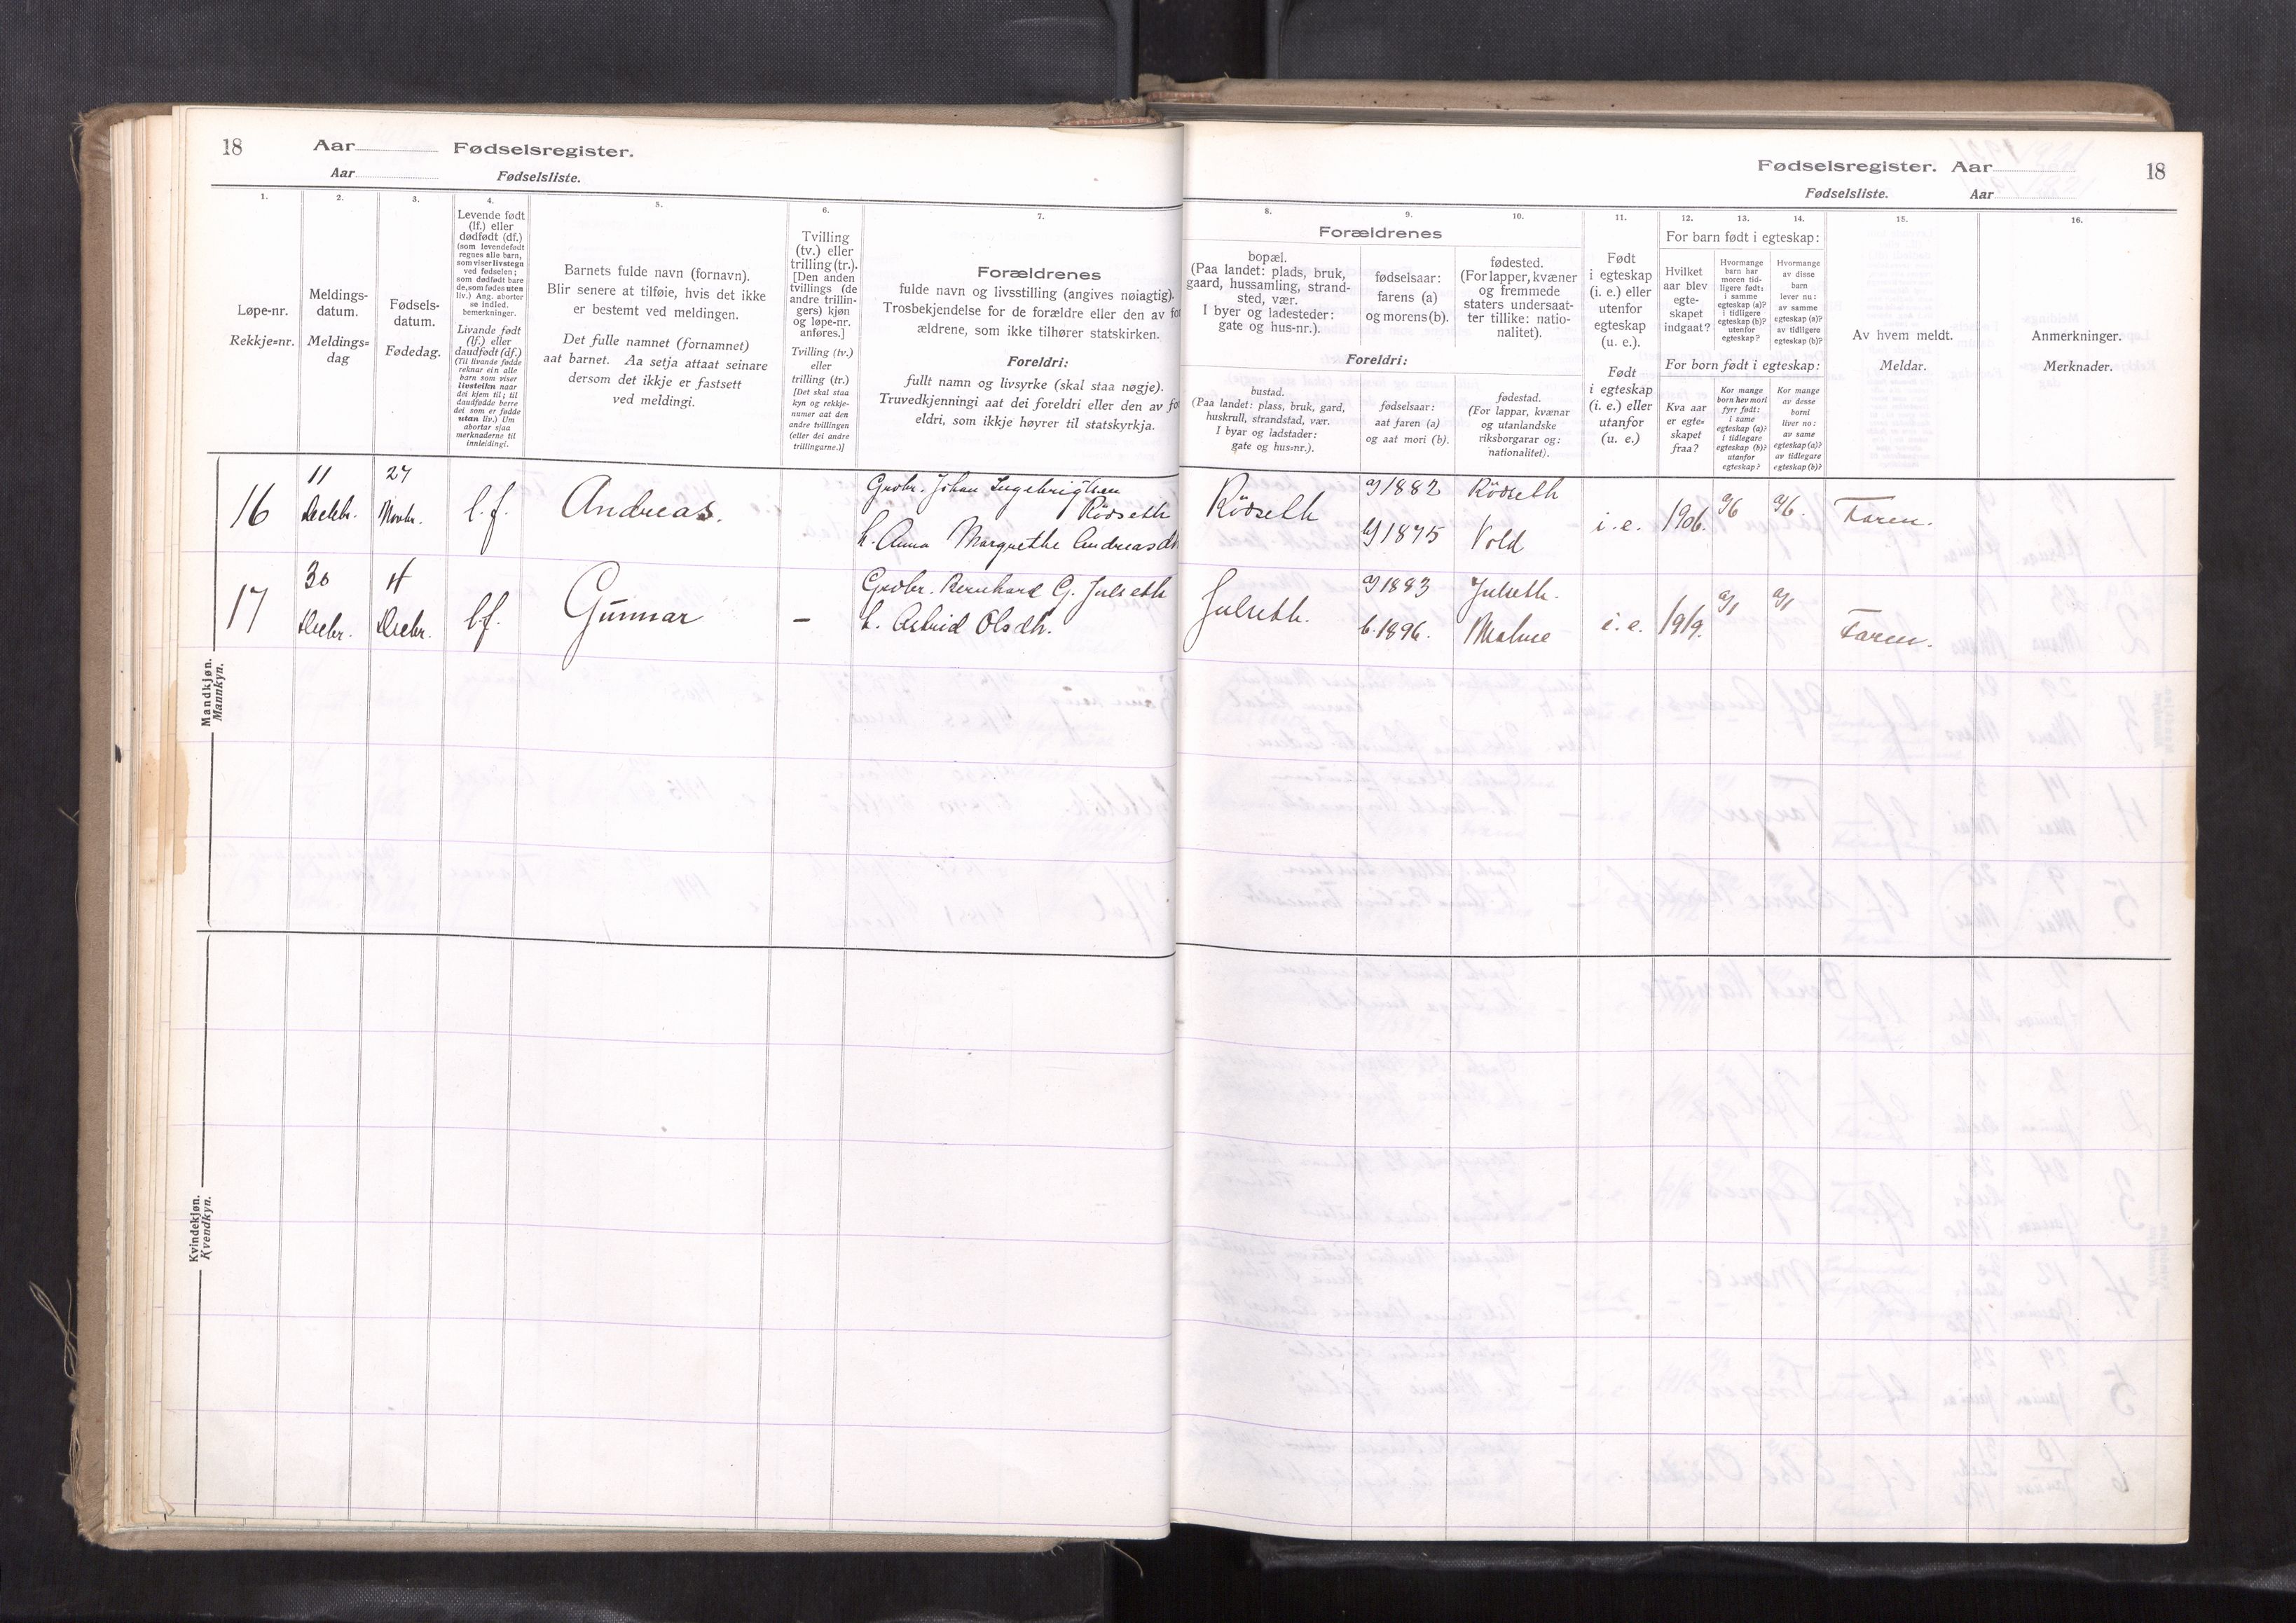 18
Aar
Fødselsregister.
Aar
Fødselsliste.
1.
Løpe-nr.
Rekkje=nr.
2.
Meldings-
datum.
Meldings=
dag
3.
Fødsels-
datum.
Fødedag.
4.
Levende født
(lf.) eller
dødfødt (df.)
(som levendefødt
regnes alle barn,
som viser livstegn
ved fødselen;
som dødfødt bare
de, som fødes uten
liv.) Ang. aborter
se indled.
bemerkninger.
Livande født
(lf.) eller
daudfødt (df.)
(Til livande fødde
reknar ein alle
barn som viser
livsteikn naar
dei kjem til; til
daudfødde berre
dei som er fødde
utan liv.) Um
abortar sjaa
merknaderne til
innleidingi.
5.
Barnets fulde navn (fornavn).
Blir senere at tilføie, hvis det ikke
er bestemt ved meldingen.
Det fulle namnet (fornamnet)
aat barnet. Aa setja attaat seinare
dersom det ikkje er fastsett
ved meldingi.
6.
Tvilling
(tv.) eller
trilling (tr.).
[Den anden
tvillings (de
andre trillin-
gers) kjøn
og løpe-nr.
anføres.]
Tvilling (tv.)
eller
trilling (tr.)
[Det skal staa
kyn og rekkje-
numer aat den
andre tvillingen
(eller dei andre
trillingarne.)]
7.
Forældrenes
fulde navn og livsstilling (angives nøiagtig).
Trosbekjendelse for de forældre eller den av for
ældrene, som ikke tilhører statskirken.
Foreldri:
fullt namn og livsyrke (skal staa nøgje).
Truvedkjenningi aat dei foreldri eller den av for
eldri, som ikkje høyrer til statskyrkja.
Mandkjøn.
Mannkyn.
16
11
Decbr.
27
Novbr.
l.f.
Andreas.
Grdbr. Johan Ingebrigtsen
Rödseth
h. Anna Margrethe Andreasdt
17
30
Decbr.
4
Decbr.
l.f.
Gunnar
–
Grdbr. Bernhard G. Julseth
h. Astrid Olsdt.
Kvindekjøn.
Kvendkyn.
Fødselsregister. Aar
18
Fødselsliste.
Aar
8.
9.
10.
Forældrenes
bopæl.
(Paa landet: plads, bruk,
gaard, hussamling, strand-
sted, vær.
I byer og ladesteder:
gate og hus-nr.).
fødselsaar:
farens (a)
og morens (b).
fødested.
(For lapper, kvæner
og fremmede
staters undersaat-
ter tillike: natio-
nalitet).
Foreldri:
bustad.
(Paa landet: plass, bruk, gard,
huskrull, strandstad, vær.
I byar og ladstader:
gate og hus=nr.).
fødselsaar:
aat faren (a)
og aat mori (b).
fødestad.
(For lappar, kvænar
og utanlandske
riksborgarar og:
nationalitet).
11.
Født
i egteskap
(i. e.) eller
utenfor
egteskap
(u. e.).
Født
i egteskap
(i. e.) eller
utanfor
(u. e.)
12.
13.
14.
For barn født i egteskap:
Hvilket
aar blev
egte-
skapet
indgaat?
Hvormange
barn har
moren tid-
ligere født:
i samme
egteskap (a)?
i tidligere
egteskap (b)?
utenfor
egteskap?
Hvormange
av disse
barn
lever nu:
av samme
egteskap (a)?
av tidligere
egteskap (b)?
For born født i egteskap:
Kva aar
er egte=
skapet
fraa?
Kor mange
born hev mori
fyrr født:
i same
egteskap (a)?
i tidlegare
egteskap (b)?
utanfor
egteskap?
Kor mange
av desse
borni
liver no:
av same
egteskap (a)?
av tidlegare
egteskap (b)?
15.
Av hvem meldt.
Meldar.
16.
Anmerkninger.
Merknader.
Rödseth
a) 1882
b) 1875
Rödseth
Vold
i. e.
1906.
a/6
a/6.
Faren.
Julseth.
a) 1883
b. 1896.
Julseth.
Malme
i. e.
1919.
a/1
a/1
Faren.